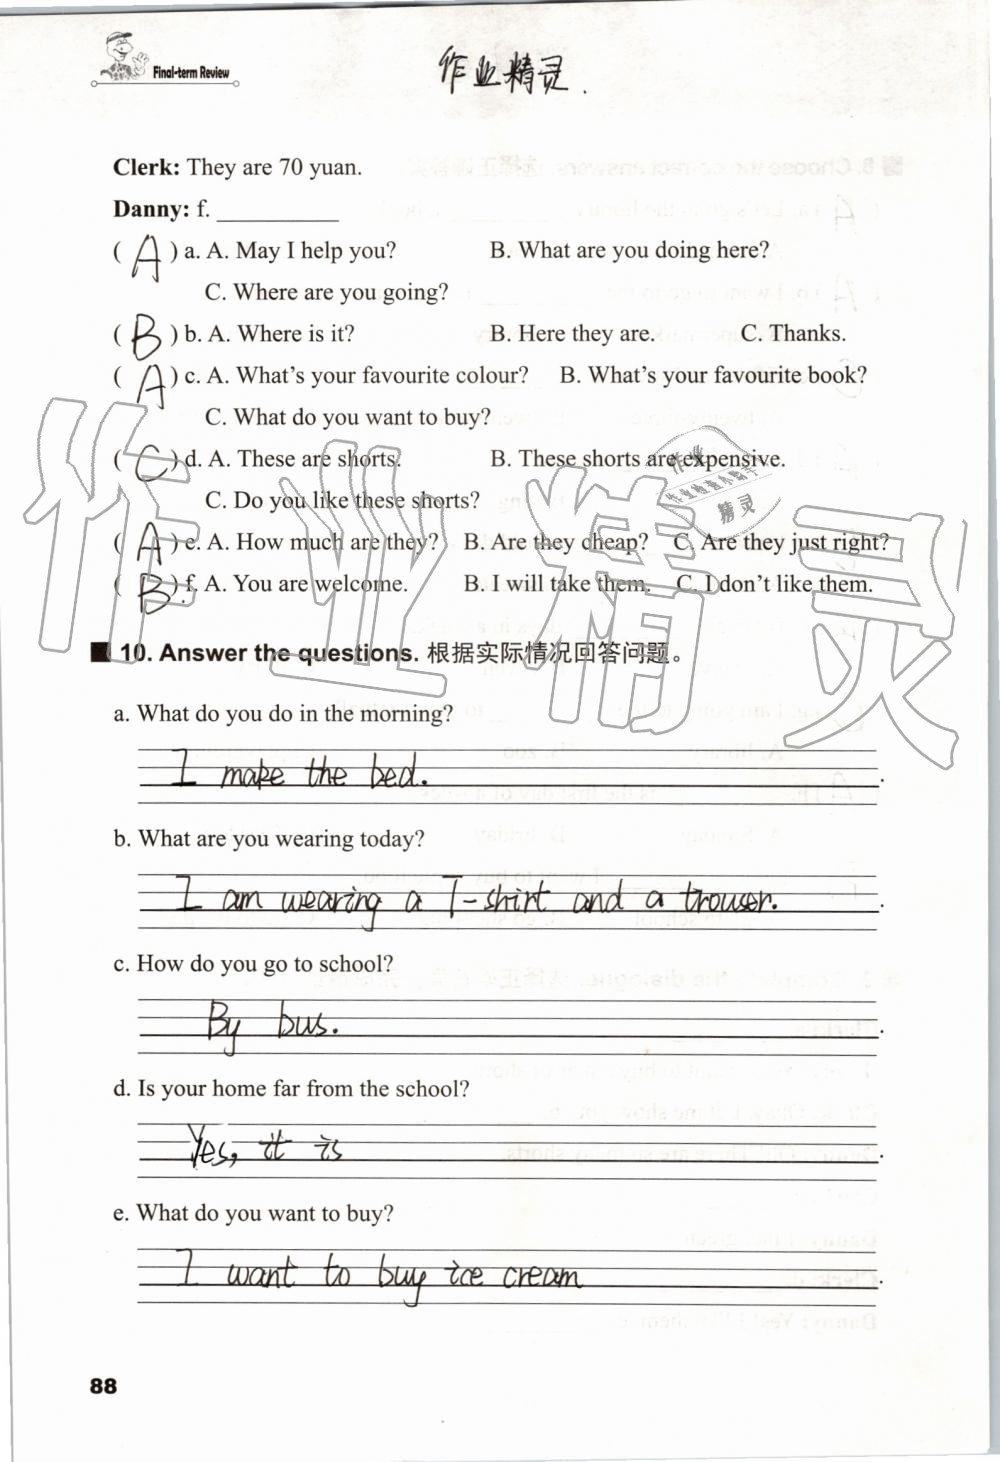 Final-term Review
作业精灵.
Clerk: They are 70 yuan.
Danny: f. __________
( A ) a. A. May I help you? B. What are you doing here?
C. Where are you going?
( B ) b. A. Where is it? B. Here they are. C. Thanks.
( A ) c. A. What's your favourite colour? B. What's your favourite book?
C. What do you want to buy?
( C ) d. A. These are shorts. B. These shorts are expensive.
C. Do you like these shorts?
( A ) e. A. How much are they? B. Are they cheap? C. Are they just right?
( B ) f. A. You are welcome. B. I will take them. C. I don't like them.
作业精灵
作业
精灵
10. Answer the questions. 根据实际情况回答问题。
a. What do you do in the morning?
I make the bed.
b. What are you wearing today?
I am wearing a T-shirt and a trouser.
c. How do you go to school?
By bus.
d. Is your home far from the school?
Yes, it is
e. What do you want to buy?
I want to buy ice cream
88